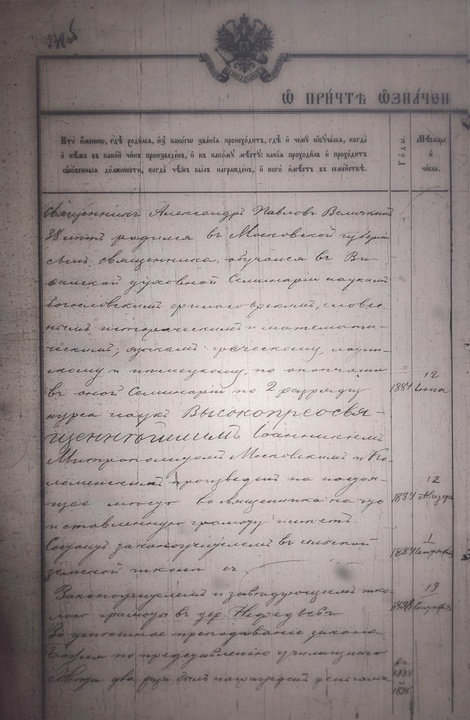 Ѿ ПРИ́ЧТѢ Ѡ҆ЗНА́ЧЕН
Кто именно, гдѣ родился, изъ какого званія происходитъ, гдѣ и чему обучался, когда
и кѣмъ въ какой чинъ произведенъ, и къ какому мѣсту; какія проходилъ и проходитъ
сторонныя должности, когда чѣмъ былъ награжденъ, и кого имѣетъ въ семействѣ.
Годы.
Мѣсяцы
и
числа.
Священникъ Александръ Павловъ Величкинъ
38 лѣтъ родился въ Московской губерніи
сынъ священника, обучался въ Ви-
ѳанской духовной Семинаріи наукамъ
богословскимъ философскимъ, словес-
нымъ историческимъ и математи-
ческимъ, языкамъ греческому, латин-
скому и нѣмецкому, по окончаніи
въ оной Семинаріи по 2 разряду
курса наукъ Высокопреосвя-
щеннѣйшимъ Іоанникіемъ
Митрополитомъ Московскимъ и Ко-
ломенскимъ произведенъ на настоя-
щее мѣсто во священника на что
и ставленную грамоту имѣетъ
12
1884
12
1884 Августа
Состоитъ законоучителемъ въ сельской
земской школѣ съ
1
1884 Сентября
Законоучителемъ и завѣдующимъ шко-
лою грамоты въ дер.
19
1888
За успѣшное преподаваніе закона
Божія по представленію училищнаго
Совѣта два раза былъ награжденъ деньгами
въ
и